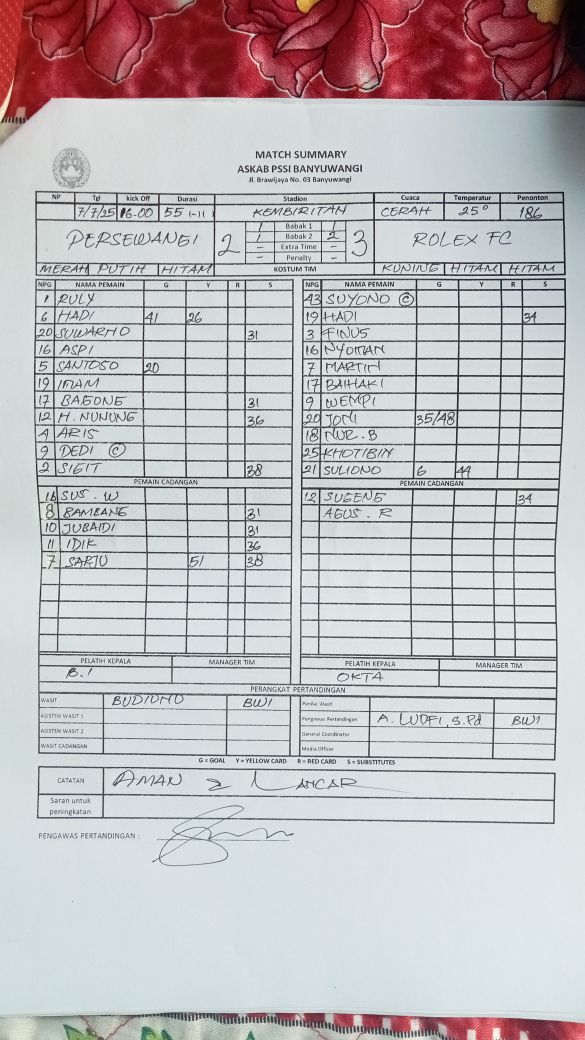 MATCH SUMMARY
ASKAB PSSI BANYUWANGI
Jl. Brawijaya No. 03 Banyuwangi
NP Tgl kick Off Durasi Stadion Cuaca Temperatur Penonton
7/7/25 16.00 55 KEMBIRITAN CERAH 25° 186
PERSEWANGI 2 1 Babak 1 1 3 ROLEX FC
1 Babak 2 2
- Extra Time -
- Penalty -
MERAH PUTIH HITAM KOSTUM TIM KUNING HITAM HITAM
NPG NAMA PEMAIN G Y R S NPG NAMA PEMAIN G Y R S
1 RULY 43 SUYONO C
6 HADI 41 26 19 HADI 34
20 SUWARNO 31 3 FINUS
16 ASPI 16 NYOMAN
5 SANTOSO 20 7 MARTIN
19 IMAM 17 BAIHAKI
17 BAGONG 31 9 WEMPI
12 H. NUNUNG 36 20 JONI 35/48
4 ARIS 18 NUR. B
9 DEDI C 25 KHOTIBIN
2 SIGIT 38 21 SULIONO 6 44
PEMAIN CADANGAN PEMAIN CADANGAN
16 SUS. W 12 SUGENG 34
8 BAMBANG 31 AGUS. R
10 JUBAIDI 31
11 IDIK 36
7 SARJU 51 38
PELATIH KEPALA MANAGER TIM PELATIH KEPALA MANAGER TIM
B.1 OKTA
PERANGKAT PERTANDINGAN
WASIT BUDIONO BWI Penilai Wasit
ASISTEN WASIT 1 Pengawas Pertandingan A. LUDFI, S.Pd BWI
ASISTEN WASIT 2 General Coordinator
WASIT CADANGAN Media Officer
G = GOAL Y = YELLOW CARD R = RED CARD S = SUBSTITUTES
CATATAN AMAN & LANCAR
Saran untuk
peningkatan
PENGAWAS PERTANDINGAN :